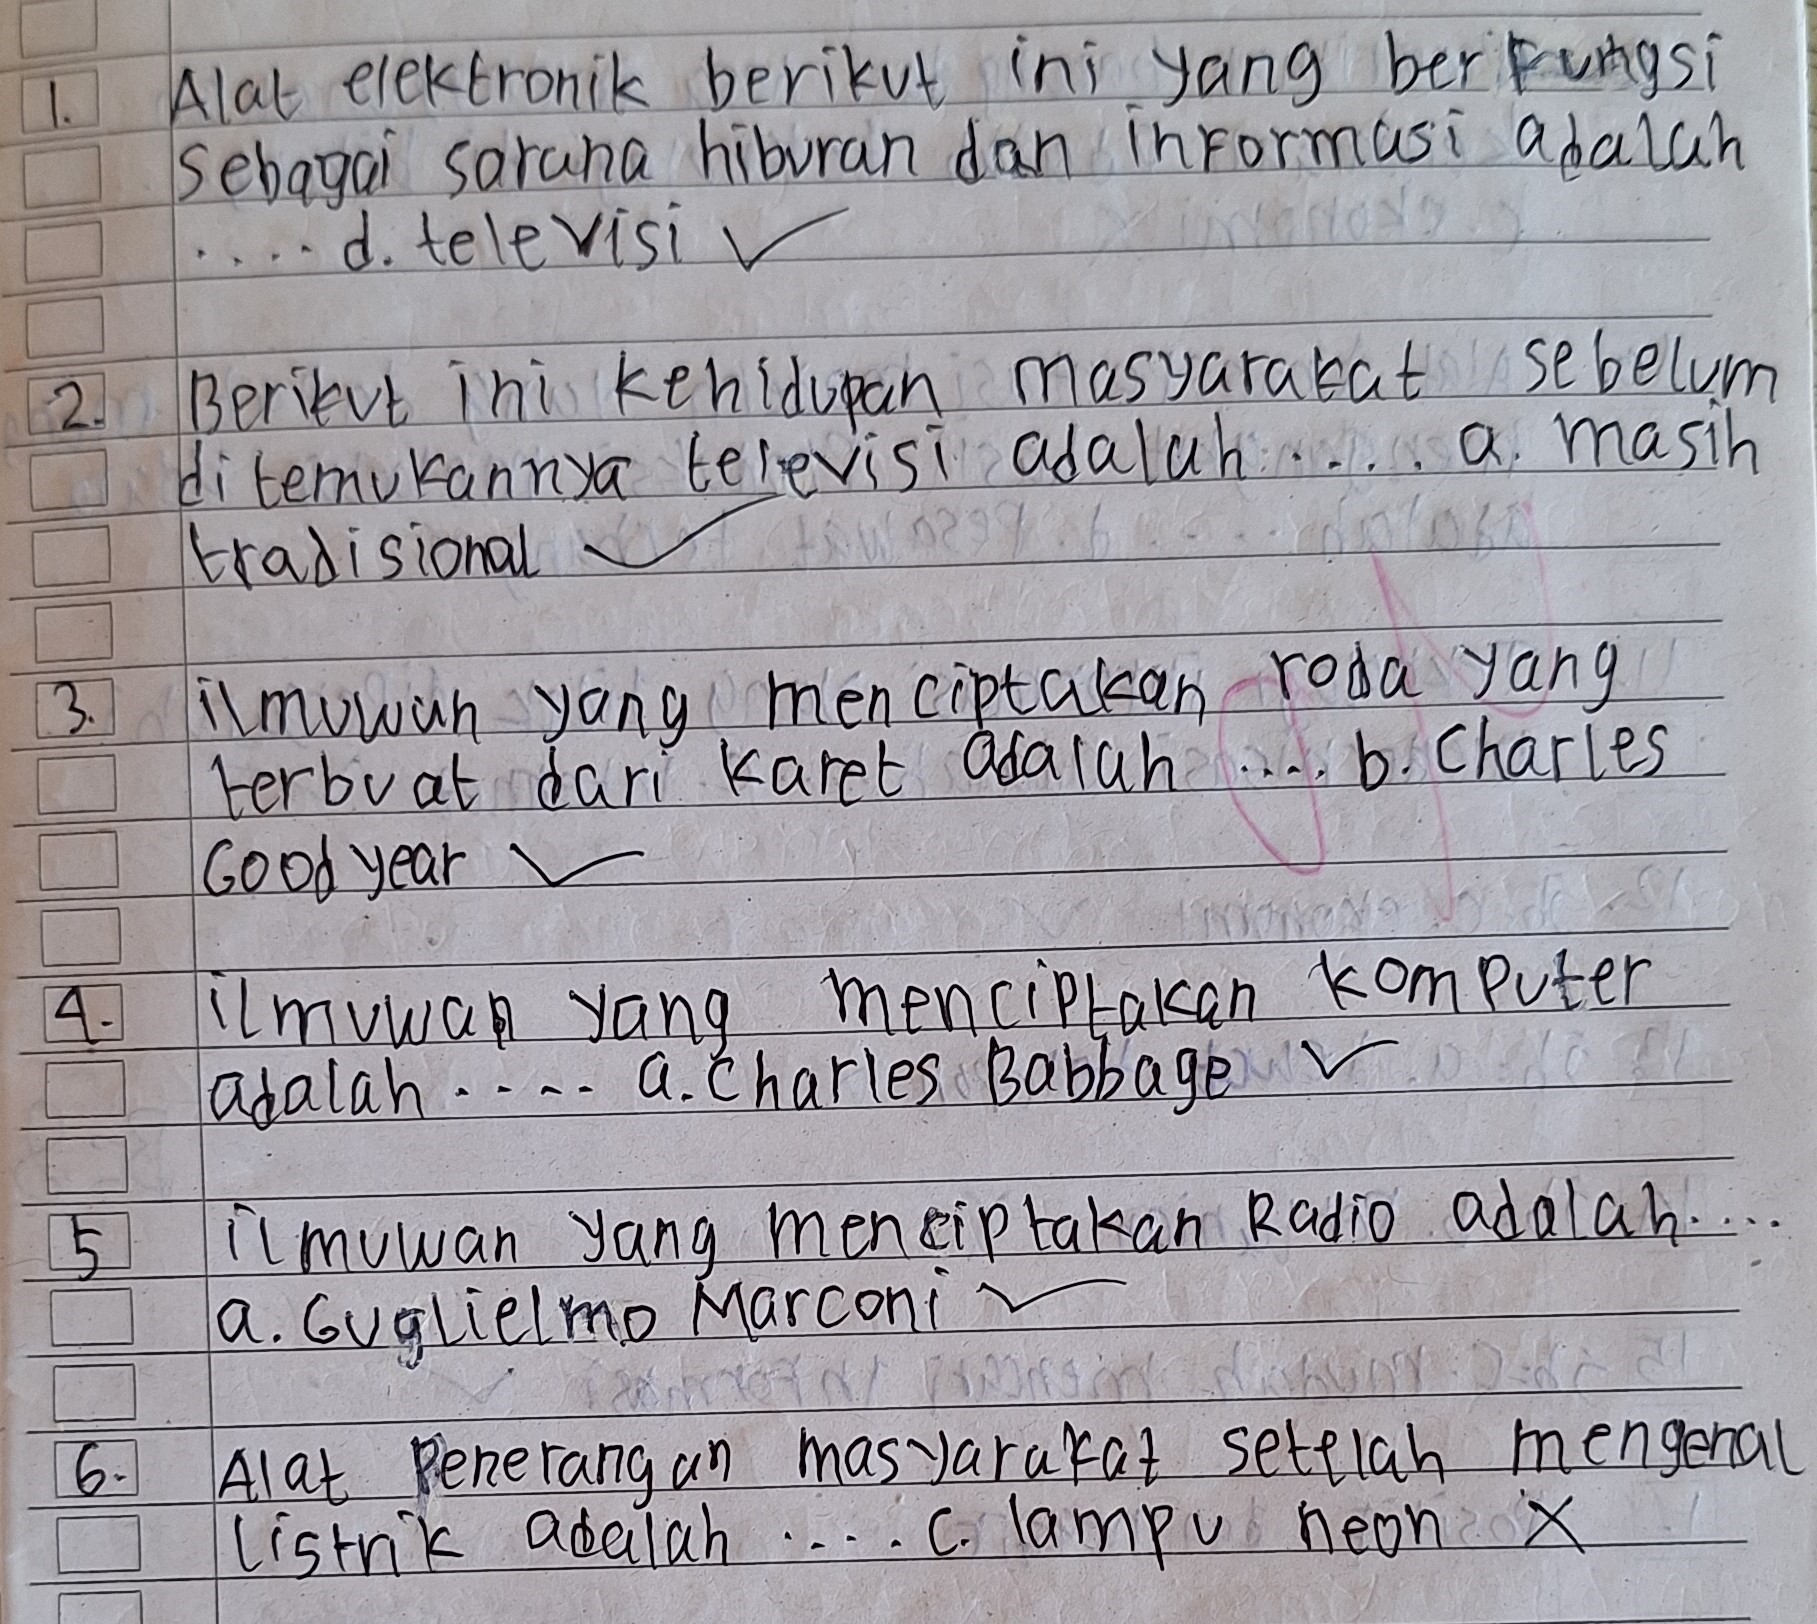 1. Alat elektronik berikut ini yang berfungsi
sebagai sarana hiburan dan informasi adalah
.... d. televisi ✓
2. Berikut ini kehidupan masyarakat sebelum
ditemukannya televisi adalah .... a. masih
tradisional ✓
3. ilmuwan yang menciptakan roda yang
terbuat dari karet adalah .... b. Charles
Goodyear ✓
4. ilmuwan yang menciptakan komputer
adalah .... a. Charles Babbage ✓
5 ilmuwan yang menciptakan Radio adalah....
a. Guglielmo Marconi ✓
6. Alat Penerangan masyarakat setelah mengenal
listrik adalah .... c. lampu neon X